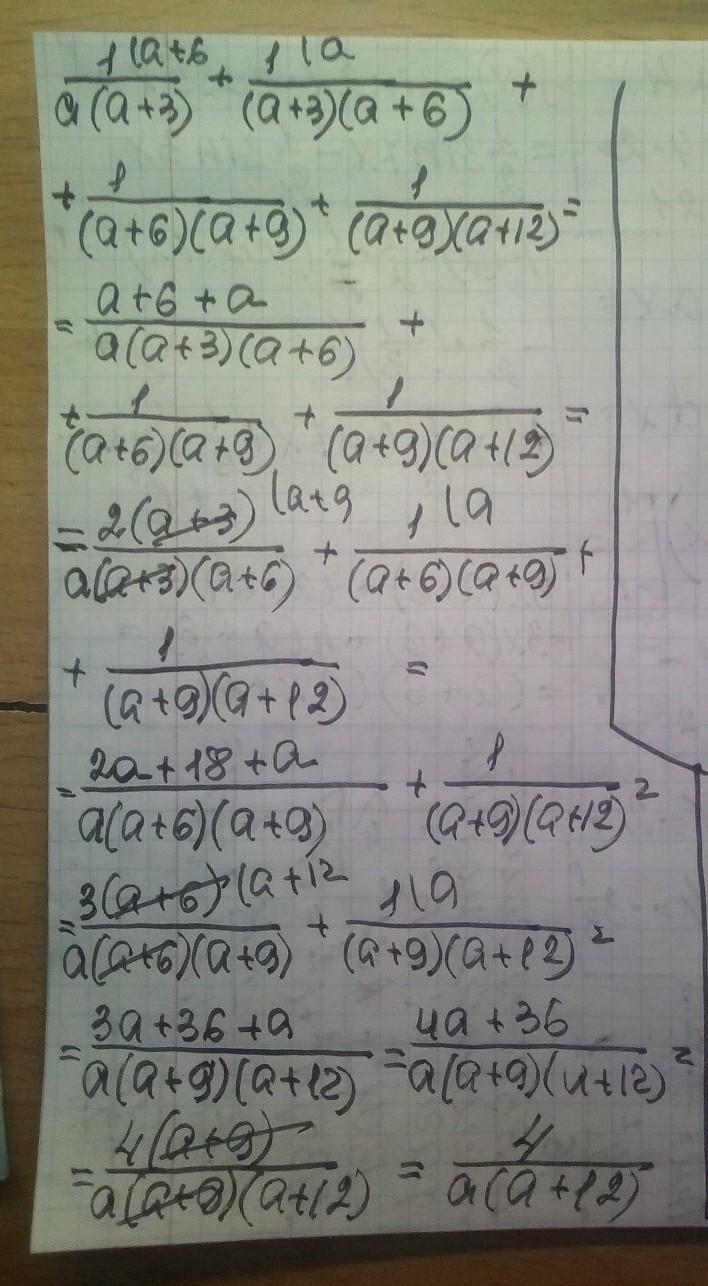 1(a+6 / a(a+3) + 1(a / (a+3)(a+6) +
+ 1 / (a+6)(a+9) + 1 / (a+9)(a+12) =
= a+6+a / a(a+3)(a+6) +
+ 1 / (a+6)(a+9) + 1 / (a+9)(a+12) =
= 2(a+3) (a+9 / a(a+3)(a+6) + 1(a / (a+6)(a+9) +
+ 1 / (a+9)(a+12) =
= 2a+18+a / a(a+6)(a+9) + 1 / (a+9)(a+12) =
= 3(a+6) (a+12 / a(a+6)(a+9) + 1(a / (a+9)(a+12) =
= 3a+36+a / a(a+9)(a+12) = 4a+36 / a(a+9)(a+12) =
= 4(a+9) / a(a+9)(a+12) = 4 / a(a+12)